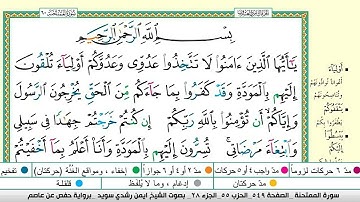 بِسْمِ اللَّهِ الرَّحْمَٰنِ الرَّحِيمِ
يَٰٓأَيُّهَا ٱلَّذِينَ ءَامَنُوا۟ لَا تَتَّخِذُوا۟ عَدُوِّى وَعَدُوَّكُمْ أَوْلِيَآءَ تُلْقُونَ
إِلَيْهِم بِٱلْمَوَدَّةِ وَقَدْ كَفَرُوا۟ بِمَا جَآءَكُم مِّنَ ٱلْحَقِّ يُخْرِجُونَ ٱلرَّسُولَ
وَإِيَّاكُمْ أَن تُؤْمِنُوا۟ بِٱللَّهِ رَبِّكُمْ إِن كُنتُمْ خَرَجْتُمْ جِهَٰدًا فِى سَبِيلِى
وَٱبْتِغَآءَ مَرْضَاتِى تُسِرُّونَ إِلَيْهِم بِٱلْمَوَدَّةِ وَأَنَا۠ أَعْلَمُ بِمَآ أَخْفَيْتُمْ
أَوْلِيَآءَ
مدّ ٦ حركات لزوماً
مدّ ٢ أو ٤ أو ٦ جوازاً
إخفاء، ومواقع الغُنَّة (حركتان)
تفخيم
مدّ واجب ٤ أو ٥ حركات
مدّ حركتان
إدغام، وما لا يُلفَظ
قلقلة
سورة الممتحنة. الصفحة ٥٤٩ الحزب ٥٥ الجزء ٢٨. بصوت الشيخ ايمن رشدي سويد. برواية حفص عن عاصم